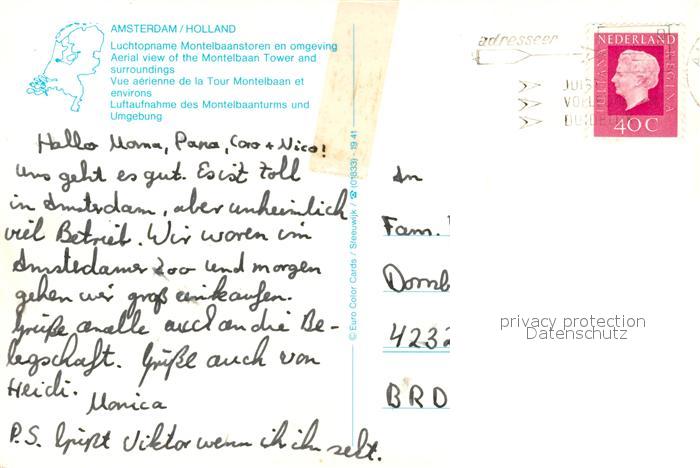 AMSTERDAM / HOLLAND
Luchtopname Montelbaanstoren en omgeving
Aerial view of the Montelbaan Tower and
surroundings
Vue aérienne de la Tour Montelbaan et
environs
Luftaufnahme des Montelbaanturms und
Umgebung
Hallo Mama, Papa, Caro + Nico!
Uns geht es gut. Es ist toll
in Amsterdam, aber unheimlich
viel Betrieb. Wir waren im
Amsterdamer Zoo und morgen
gehen wir groß einkaufen.
Grüße an alle auch an die Be-
legschaft. Grüße auch von
Heidi.
Monica
P.S. Grüßt Viktor wenn ihr ihn seht.
© Euro Color Cards / Sleeuwijk / ☎ (01833) - 19 41
adresseer
JUIS
VOLL
NEDERLAND
JULIANA REGINA
40 C
An
Fam.
Domb
4232
BRD
privacy protection
Datenschutz